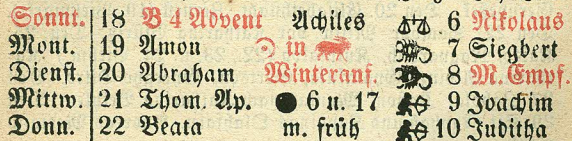 Sonnt. 18 B 4 Advent Achiles 6 Nikolaus
Mont. 19 Amon ☉ in 7 Siegbert
Dienst. 20 Abraham Winteranf. 8 M. Empf.
Mittw. 21 Thom. Ap. ● 6 u. 17 9 Joachim
Donn. 22 Beata m. früh 10 Juditha